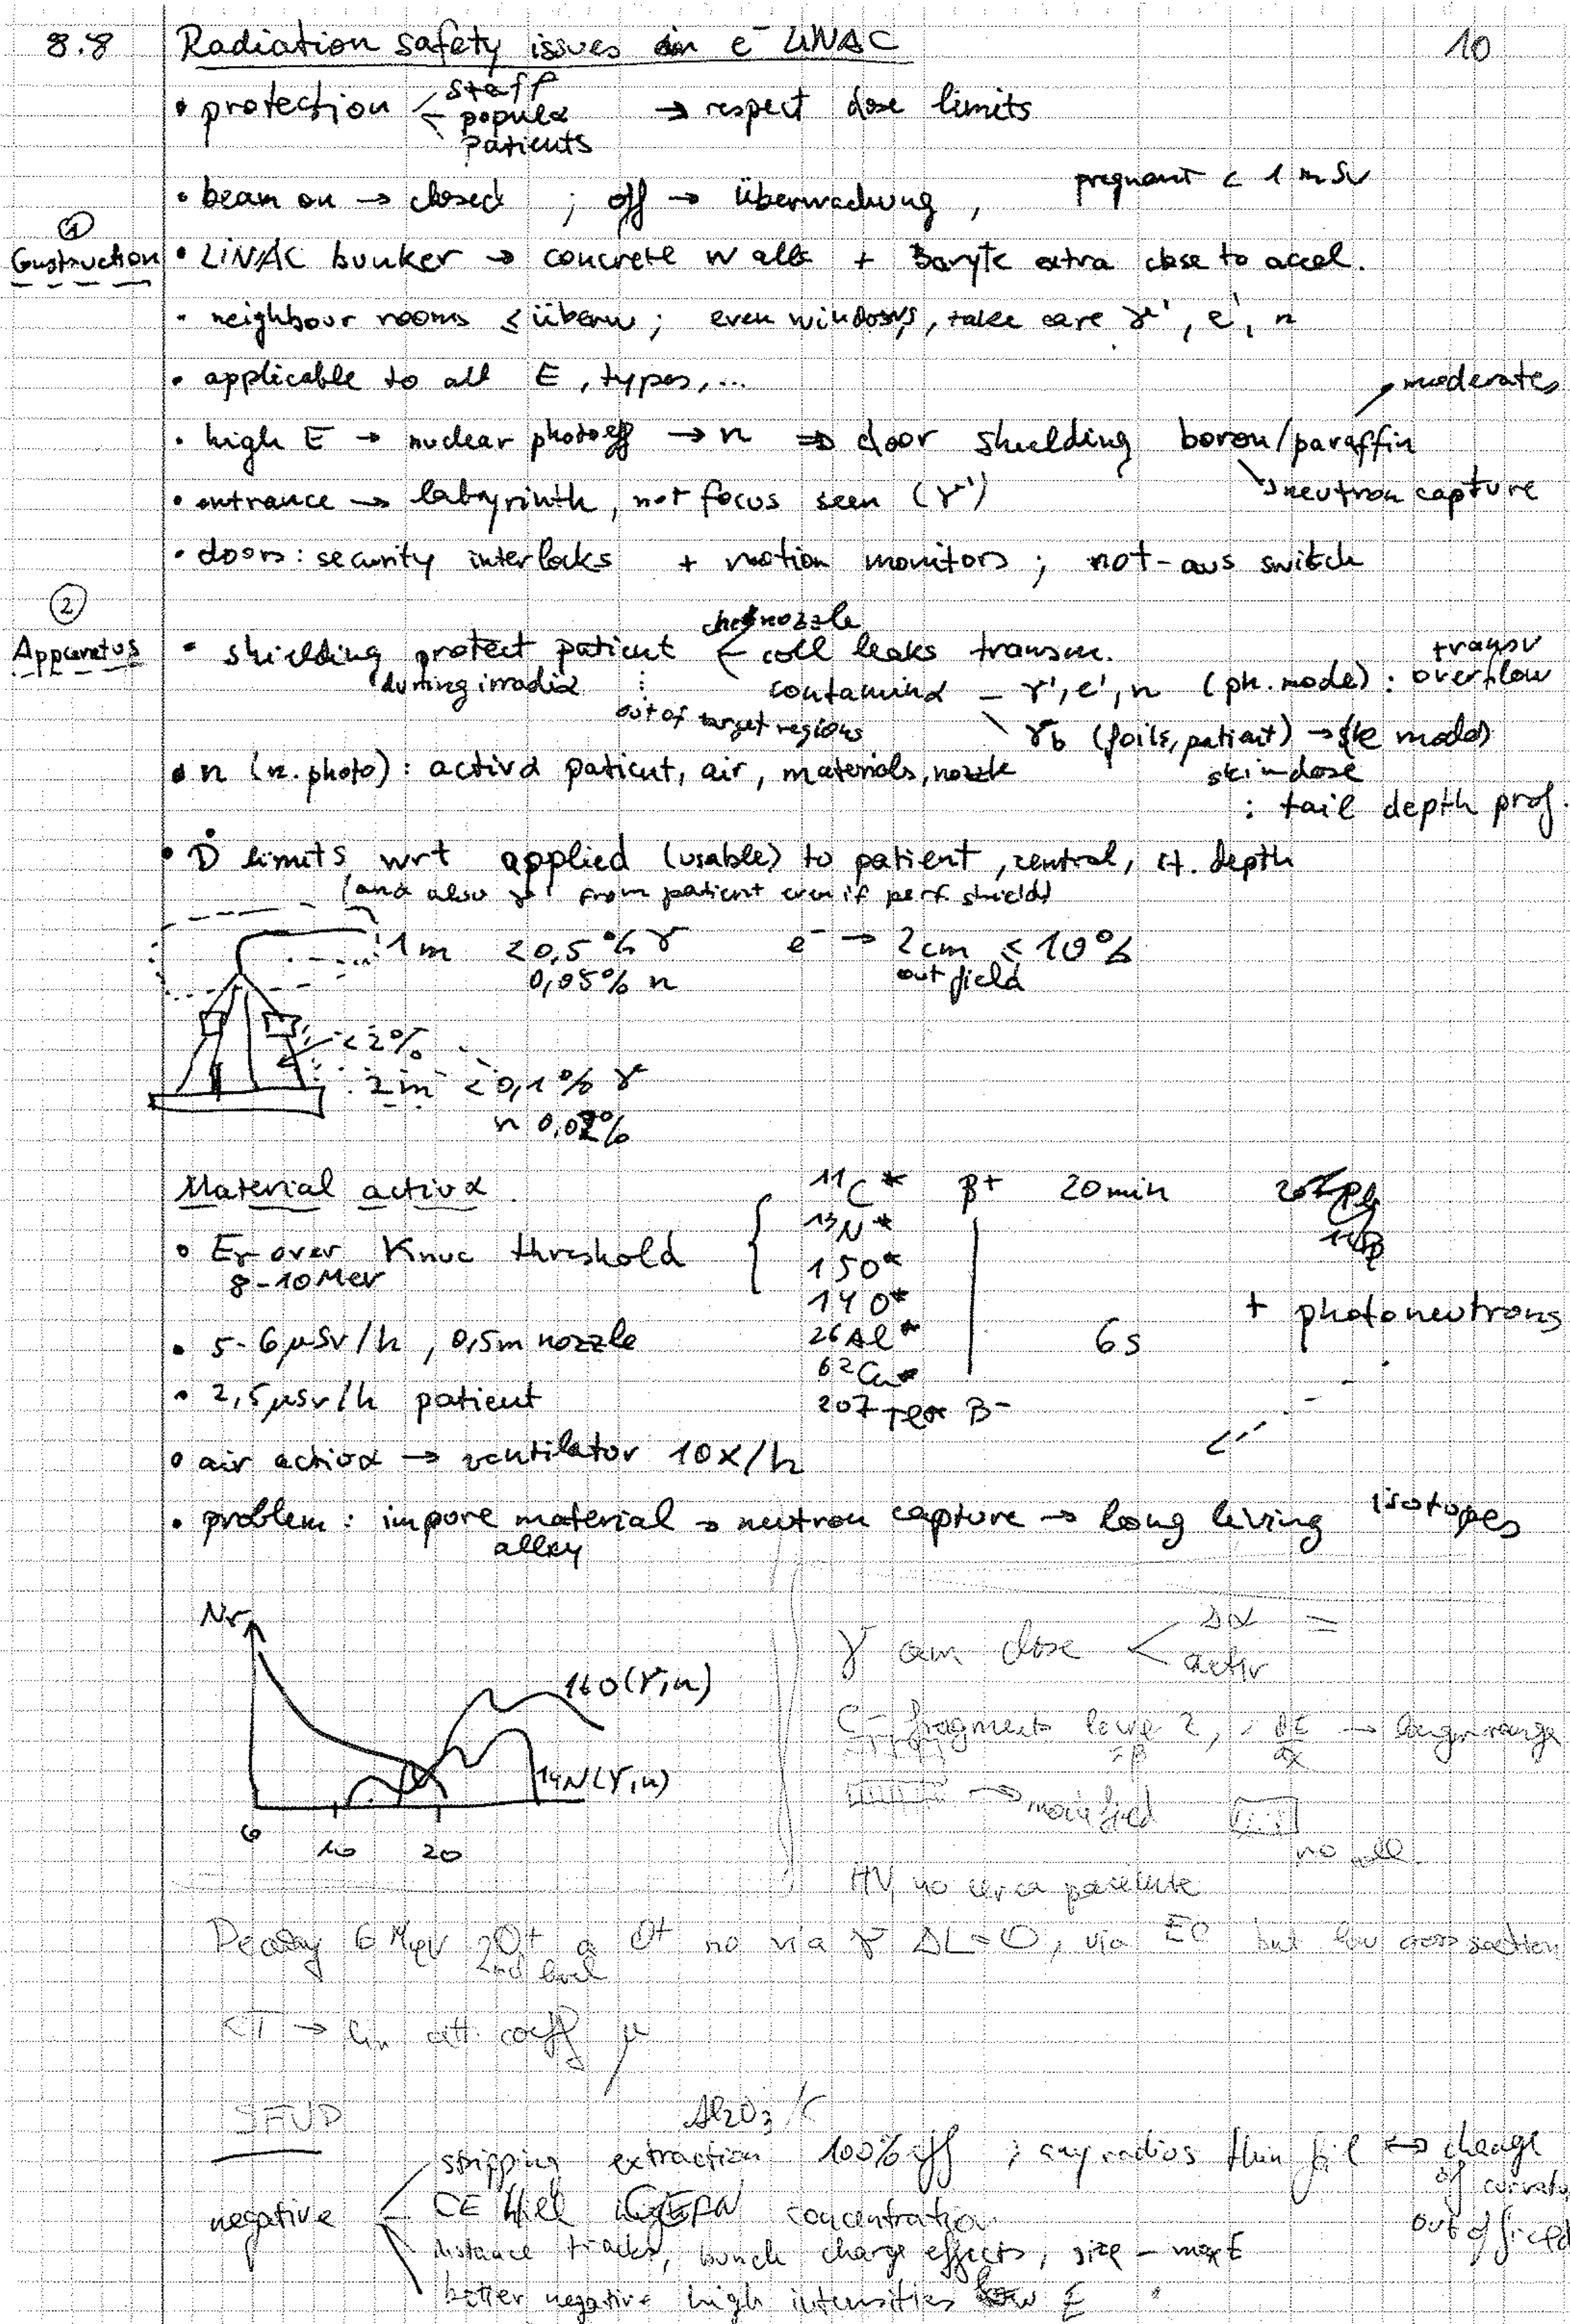 8.8 Radiation safety issues in e⁻ LINAC 10
• protection staff
populα → respect dose limits
patients
pregnant < 1 mSv
• beam on → closed ; off → überwachung ,
① Construction
• LINAC bunker → concrete walls + Baryte extra close to accel.
• neighbour rooms ≤ überw ; even windows, take care γ', e', n
• applicable to all E, types, ...
moderates
• high E → nuclear photoeff → n ⇒ door shielding boron/paraffin
neutron capture
• entrance → labyrinth, not focus seen (γ')
• doors: security interlocks + motion monitors ; not-aus switch
② Apparatus
nozzle
• shielding protect patient ← coll leaks transm.
during irradiα
out of target regions
contaminα – γ', e', n (ph. mode) : transv overflow
γb (foils, patient) → (e mode)
skin dose
: tail depth prof.
• n (n. photo) : activα patient, air, materials, nozzle
• Ḋ limits wrt applied (usable) to patient, central, st. depth
(and also γ' from patient even if perf. shield)
1 m <0,5% γ e⁻ → 2cm ≤ 10%
0,05% n out field
<2%
2m <0,1% γ
n 0,02%
Material activα.
• Eγ over Knuc threshold
8-10 MeV
• 5-6 μSv/h, 0,5m nozzle
• 2,5 μSv/h patient
¹¹C* β+ 20min
¹³N*
15O*
14O*
26Al* 6s
62Cu*
207 Tl* β⁻
+ photoneutrons
• air activα → ventilator 10x/h
• problem: impure material → neutron capture → long living isotopes
alloy
Nγ
16O(γ,n)
14N(γ,n)
6 10 20
γ cam dose <
activ
C fragments lower Z, dE/dx → longer range
→ modified
no
HV no
Decay 6 MeV 0+ a 0+ no via γ ΔL=0, via E0 but low cross section
2nd level
CT → lin att. coeff μ
Al₂O₃
negative
stripping extraction 100% eff ; any radios thin foil ↔ change
of
out of field
concentration
distance tracks, bunch charge effects, size – max E
better negative high intensities low E